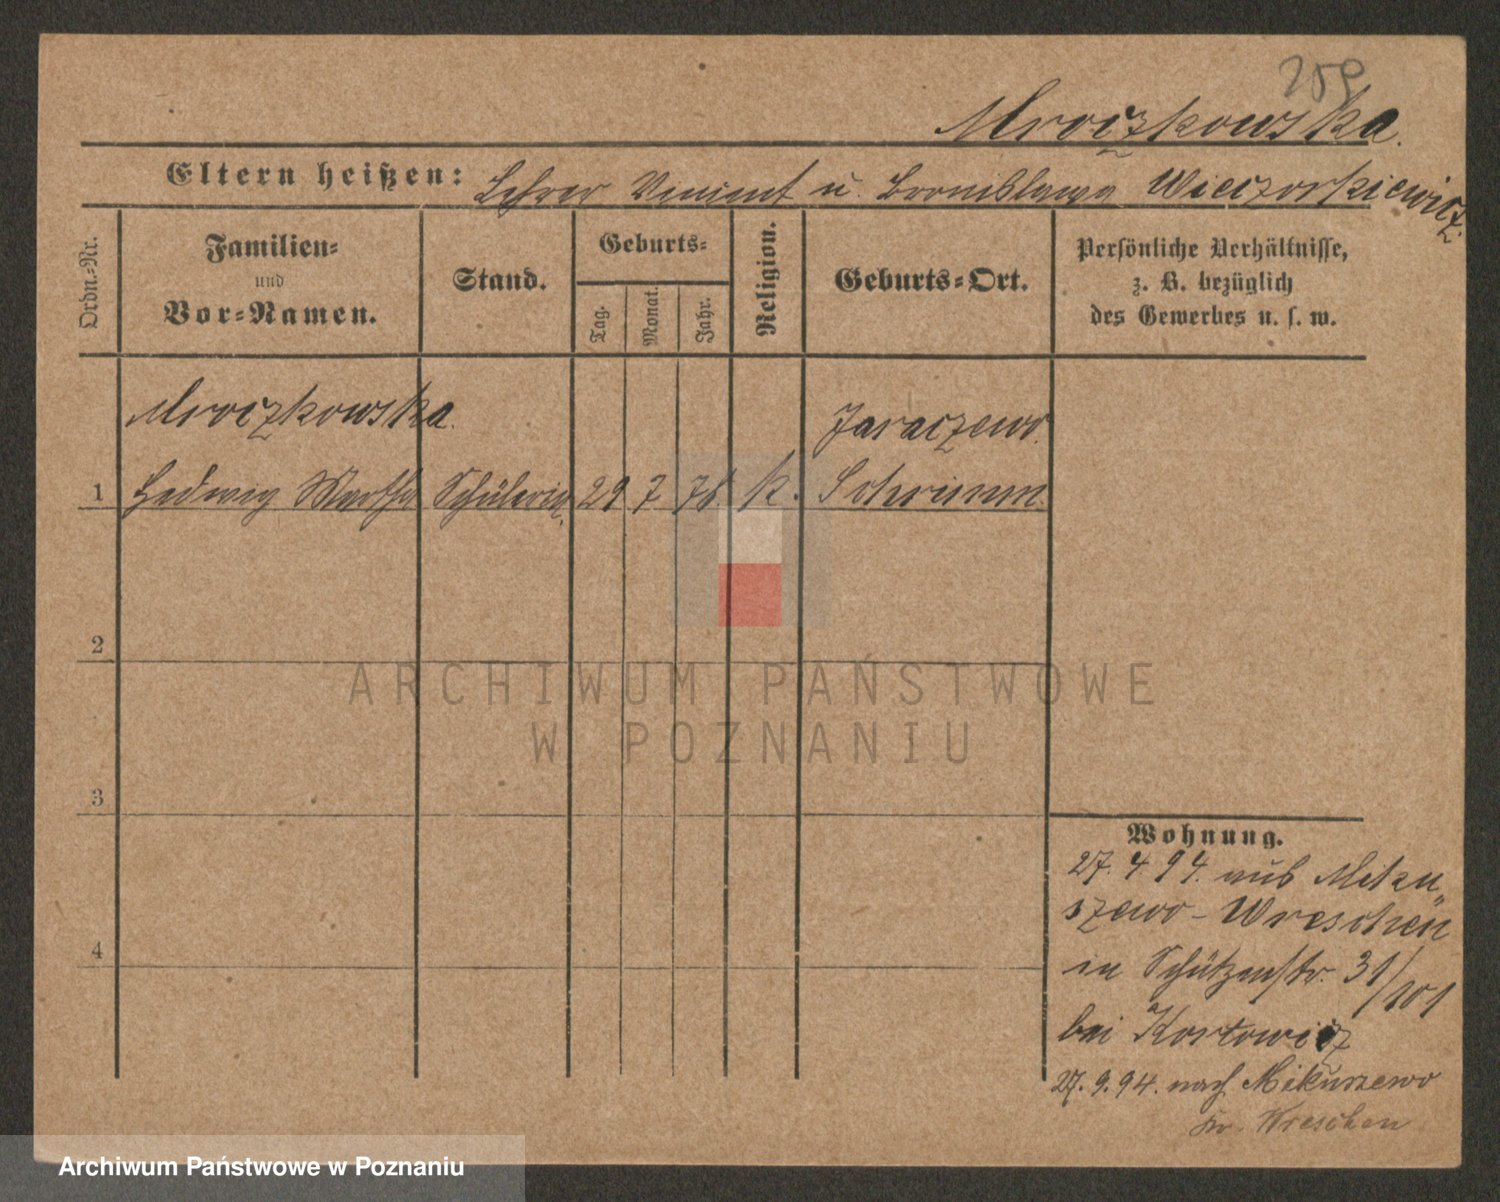 259
Mroczkowska.
Eltern heißen: Lehrer Vincent u. Bronislawa Wieczorkiewicz.
Ordn.-Nr.
Familien-
und
Vor-Namen.
Stand.
Geburts-
Tag.
Monat.
Jahr.
Religion.
Geburts-Ort.
Persönliche Verhältnisse,
z. B. bezüglich
des Gewerbes u. s. w.
Mroczkowska. Jaraczewo.
1 Hedwig Martha Schülerin 29 7 78. k. Schrimm.
2
3
4
Wohnung.
27. 4 94. aus Miku„
szewo - Wreschen
in Schützenstr. 31/101
bei Kortowicz
27. 9. 94. nach Mikuszewo
Kr. Wreschen
ARCHIWUM PAŃSTWOWE
W POZNANIU
Archiwum Państwowe w Poznaniu